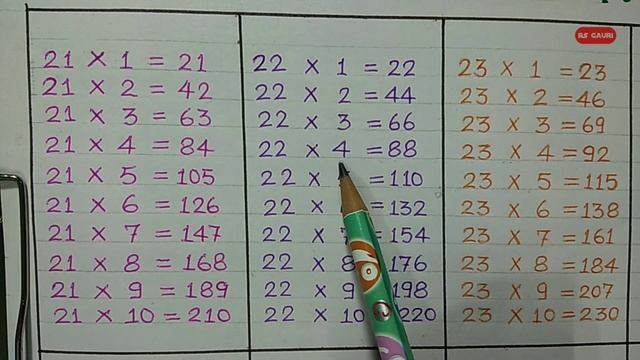 RS GAURI
21 × 1 = 21
21 × 2 = 42
21 × 3 = 63
21 × 4 = 84
21 × 5 = 105
21 × 6 = 126
21 × 7 = 147
21 × 8 = 168
21 × 9 = 189
21 × 10 = 210
22 × 1 = 22
22 × 2 = 44
22 × 3 = 66
22 × 4 = 88
22 × = 110
22 × = 132
22 × = 154
22 × 8 176
22 × 9 198
22 × 10 220
23 × 1 = 23
23 × 2 = 46
23 × 3 = 69
23 × 4 = 92
23 × 5 = 115
23 × 6 = 138
23 × 7 = 161
23 × 8 = 184
23 × 9 = 207
23 × 10 = 230